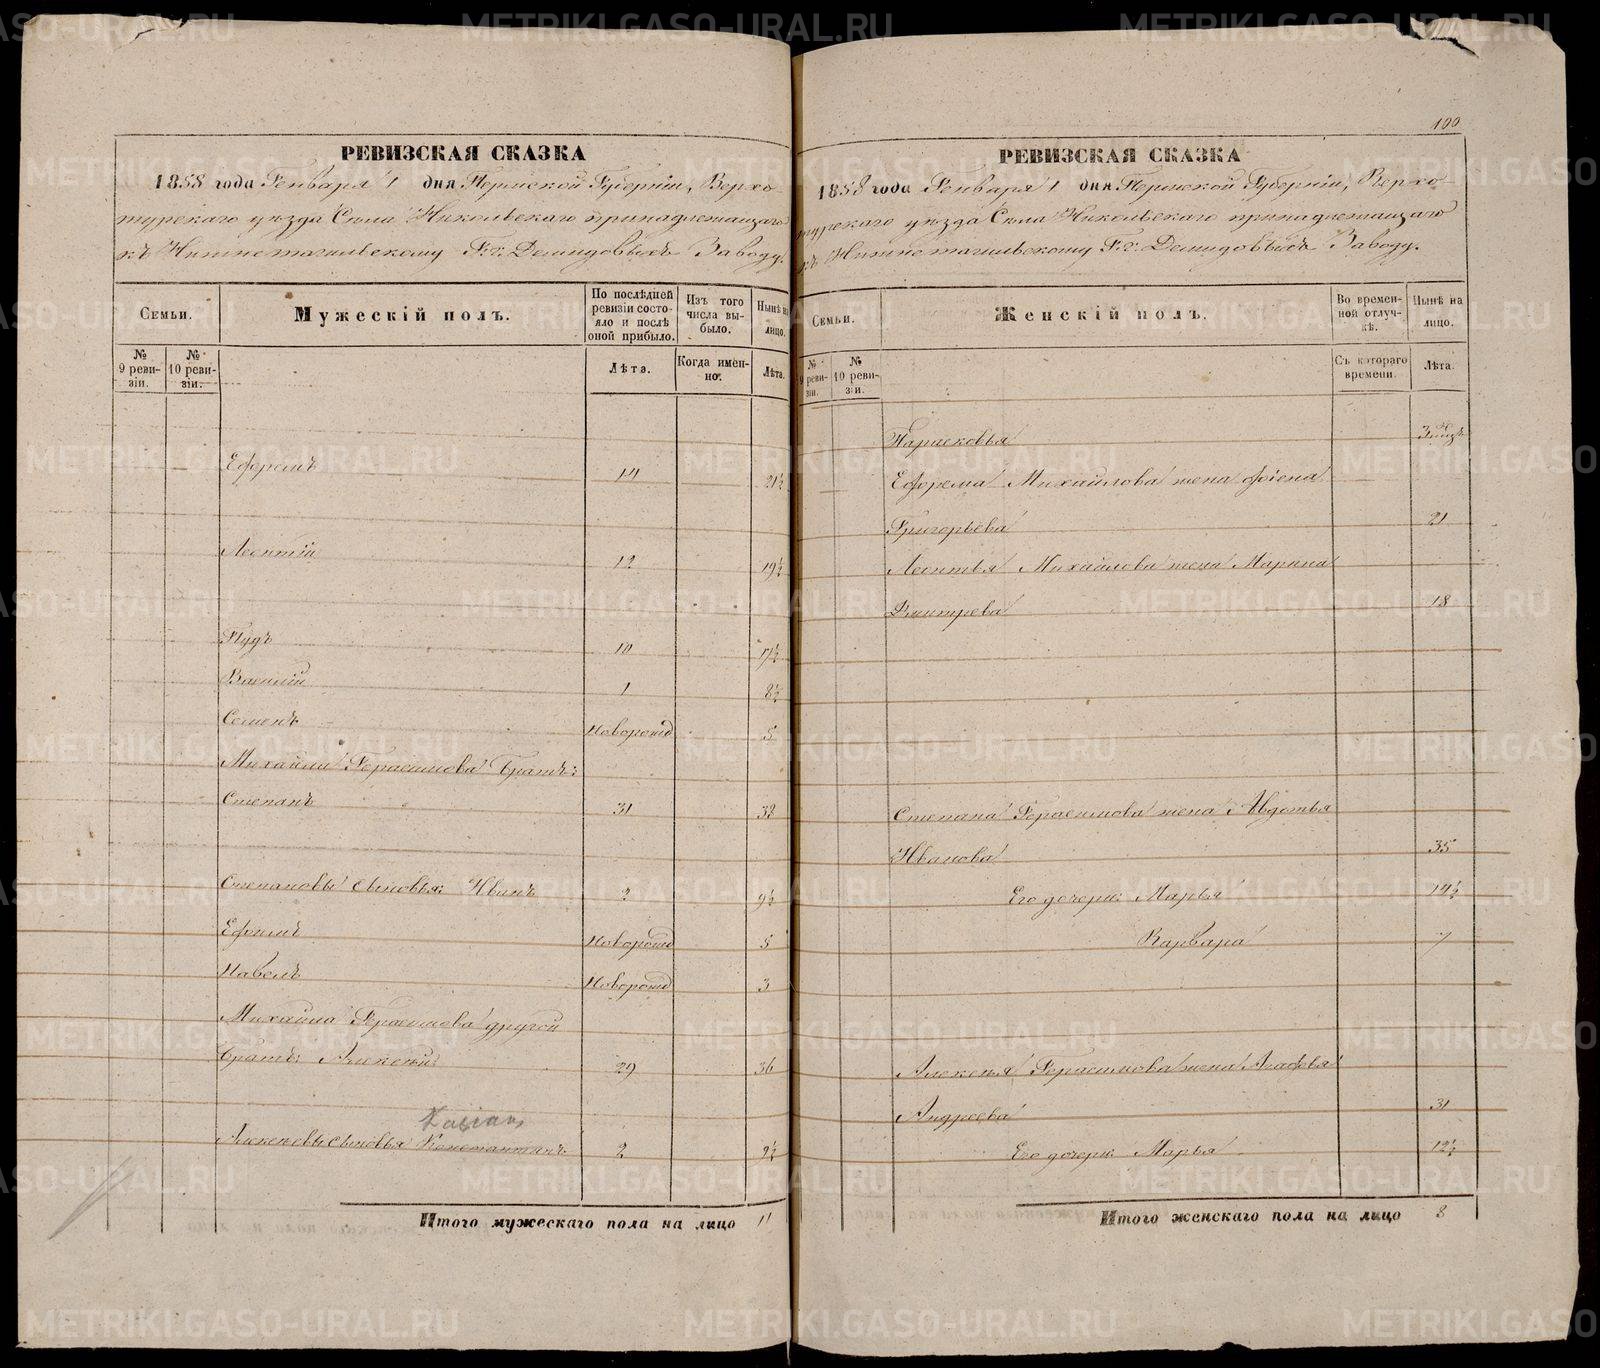 РЕВИЗСКАЯ СКАЗКА
1858 года Генваря 1 дня Пермской Губерніи, Верхо-
турскаго уѣзда Села Никольскаго принадлежащаго
къ Нижнетагильскому Г.г. Демидовыхъ Заводу.
Семьи.
Мужескій полъ.
По послѣдней ревизіи состояло и послѣ оной прибыло.
Изъ того числа выбыло.
Нынѣ на лицо.
№ 9 ревизіи.
№ 10 ревизіи.
Лѣта.
Когда именно.
Лѣта.
Ефремъ 14 21½
Леонтій 12 19½
Пудъ 10 17½
Василій 1 8½
Семенъ Новорожд 5
Михайлы Герасимова Братъ:
Степанъ 31 38
Степановы сыновья: Иванъ 2 9½
Ефимъ Новорожд 5
Павелъ Новорожд 3
Михайла Герасимова другой
Братъ Алексѣй 29 36
Алексѣевы сыновья Константинъ 2 9½
Итого мужескаго пола на лицо 11
100
РЕВИЗСКАЯ СКАЗКА
1858 года Генваря 1 дня Пермской Губерніи, Верхо-
турскаго уѣзда Села Никольскаго принадлежащаго
къ Нижнетагильскому Г.г. Демидовыхъ Заводу.
Семьи.
Женскій полъ.
Во временной отлучкѣ.
Нынѣ на лицо.
№ 9 ревизіи.
№ 10 ревизіи.
Съ котораго времени.
Лѣта.
Парасковья
Ефрема Михайлова жена Фіена
Григорьева 21
Леонтья Михайлова жена Марина
18
Степана Герасимова жена Авдотья
Иванова 35
Его дочери: Марья 14½
Варвара 7
Алексѣя Герасимова жена Агафья
Андреева 31
Его дочери: Марья 12½
Итого женскаго пола на лицо 8
METRIKI.GASO-URAL.RU